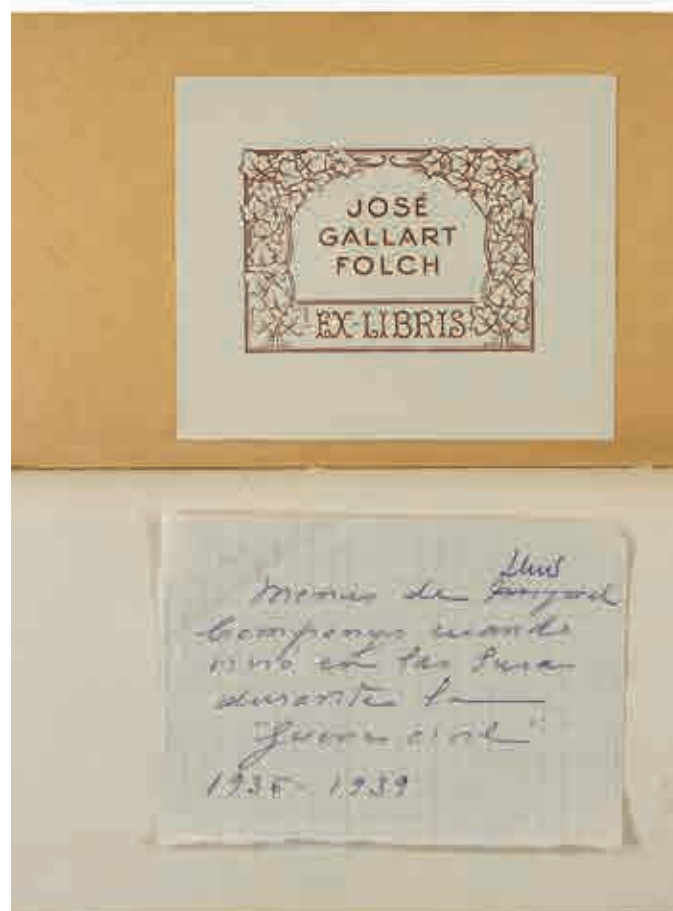 JOSÉ
GALLART
FOLCH
EX-LIBRIS
Lluis
Menus de
Companys cuando
vivió en
durante la
"Guerra civil"
1936-1939